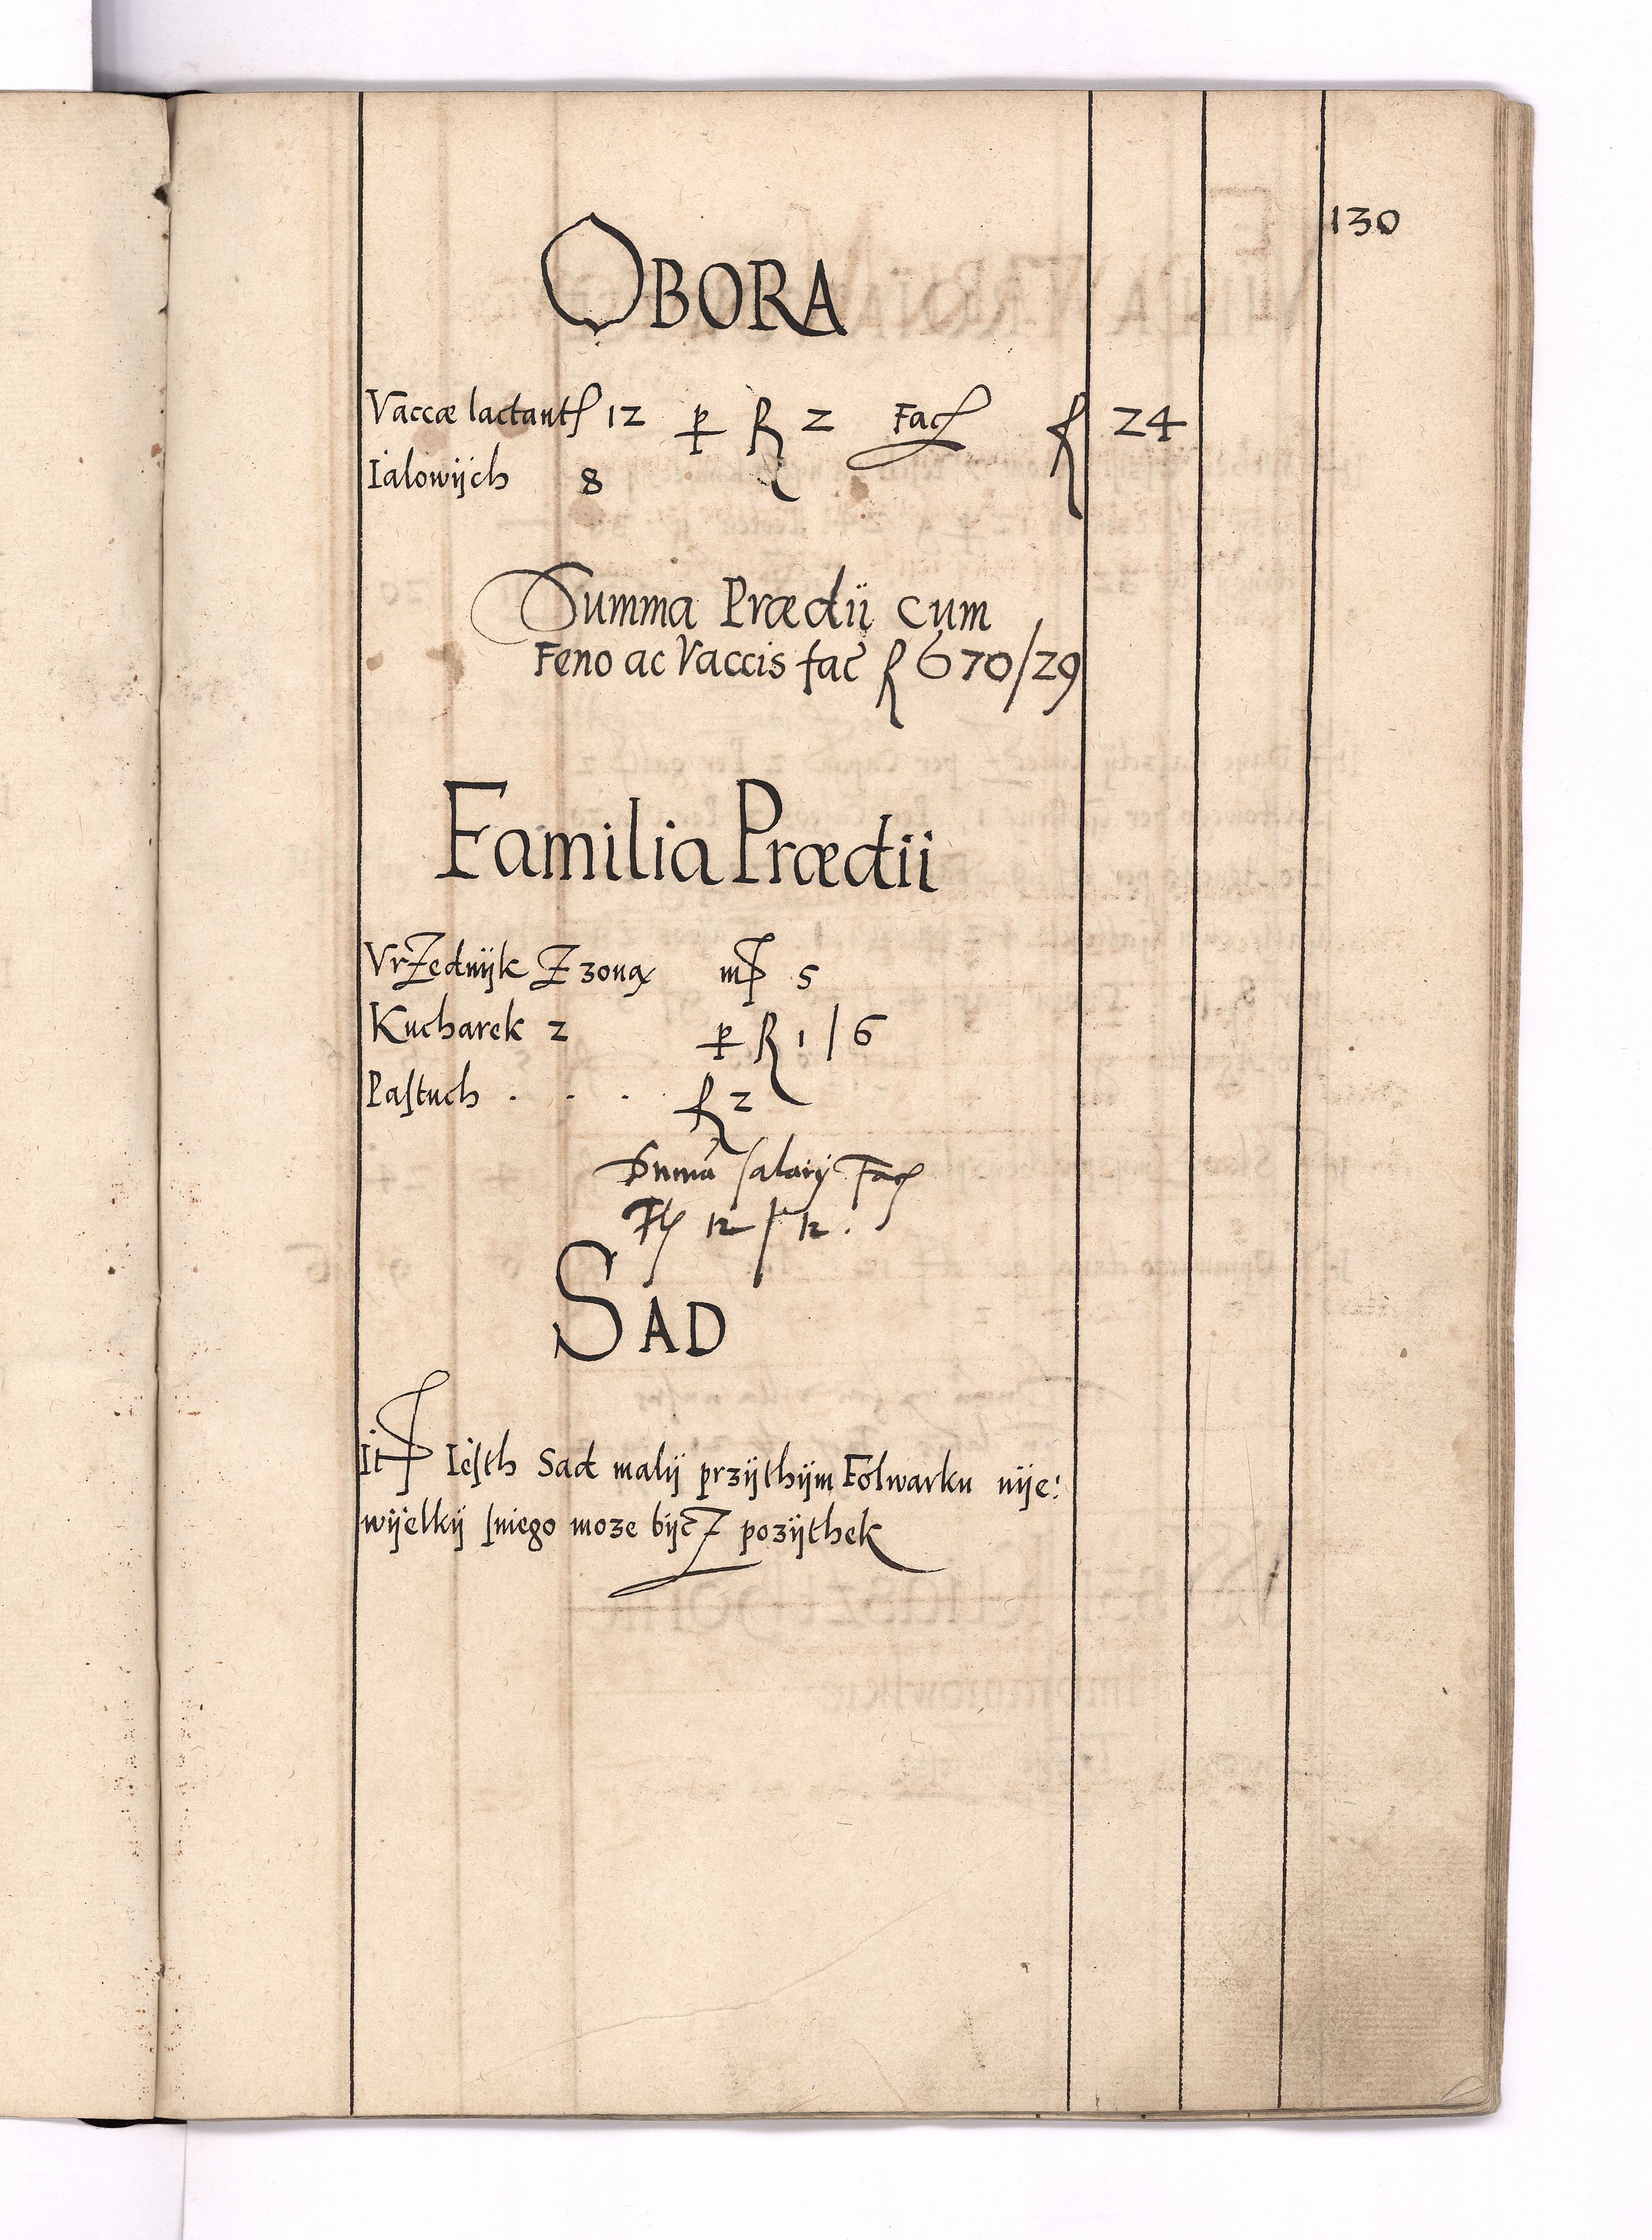 130
OBORA
Vaccæ lactant 12 p fl 2 Fac fl 24
Ialowÿch 8
Summa Prædii cum
Feno ac Vaccis fac fl 670/29
Familia Prædii
VrZednÿk Z zoną mr 5
Kucharek 2 p fl 1/6
Paſtuch . . . fl 2
Summa ſalarÿ Fac
Fl 12/12.
SAD
It Ieſth Sad malÿ przÿthÿm Folwarku nÿe:
wÿelkÿ ſniego moze bÿcZ pozÿthek